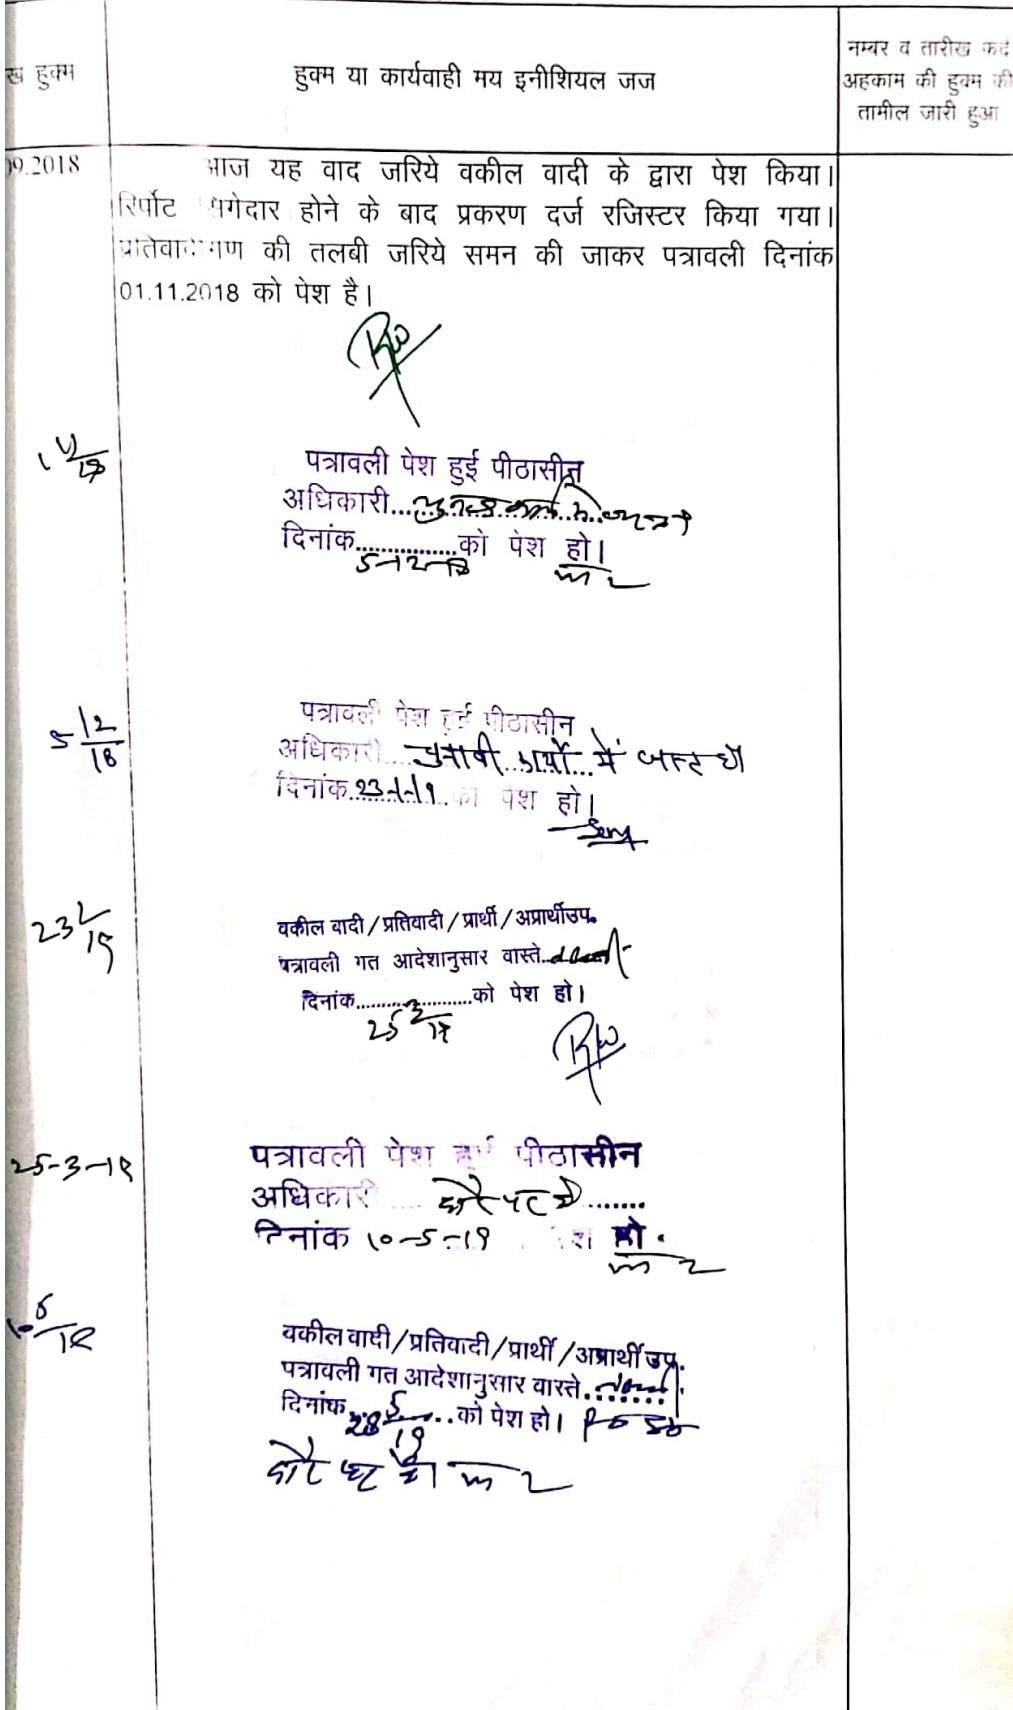 ख हुक्म
हुक्म या कार्यवाही मय इनीशियल जज
नम्बर व तारीख
अहकाम की हुक्म की
तामील जारी हुआ
09.2018
आज यह वाद जरिये वकील वादी के द्वारा पेश किया।
रिर्पोट होने के बाद प्रकरण दर्ज रजिस्टर किया गया।
प्रतिवादीगण की तलबी जरिये समन की जाकर पत्रावली दिनांक
01.11.2018 को पेश है।
पत्रावली पेश हुई पीठासीन
अधिकारी
दिनांक 5-12-18 को पेश हो।
5 12/18
पत्रावली पेश हुई पीठासीन
अधिकारी चुनावी कार्यो में व्यस्त थे
दिनांक 23-1-19 को पेश हो।
23 1/19
वकील वादी/प्रतिवादी/प्रार्थी/अप्रार्थी उप.
पत्रावली गत आदेशानुसार वास्ते
दिनांक 25 3/19 को पेश हो।
25-3-19
पत्रावली पेश हुई पीठासीन
अधिकारी दौरे पर थे
दिनांक 10-5-19 पेश हो.
वकील वादी/प्रतिवादी/प्रार्थी/अप्रार्थी उप.
पत्रावली गत आदेशानुसार वास्ते
दिनांक 28 5/19 को पेश हो।
दौरे पर थे